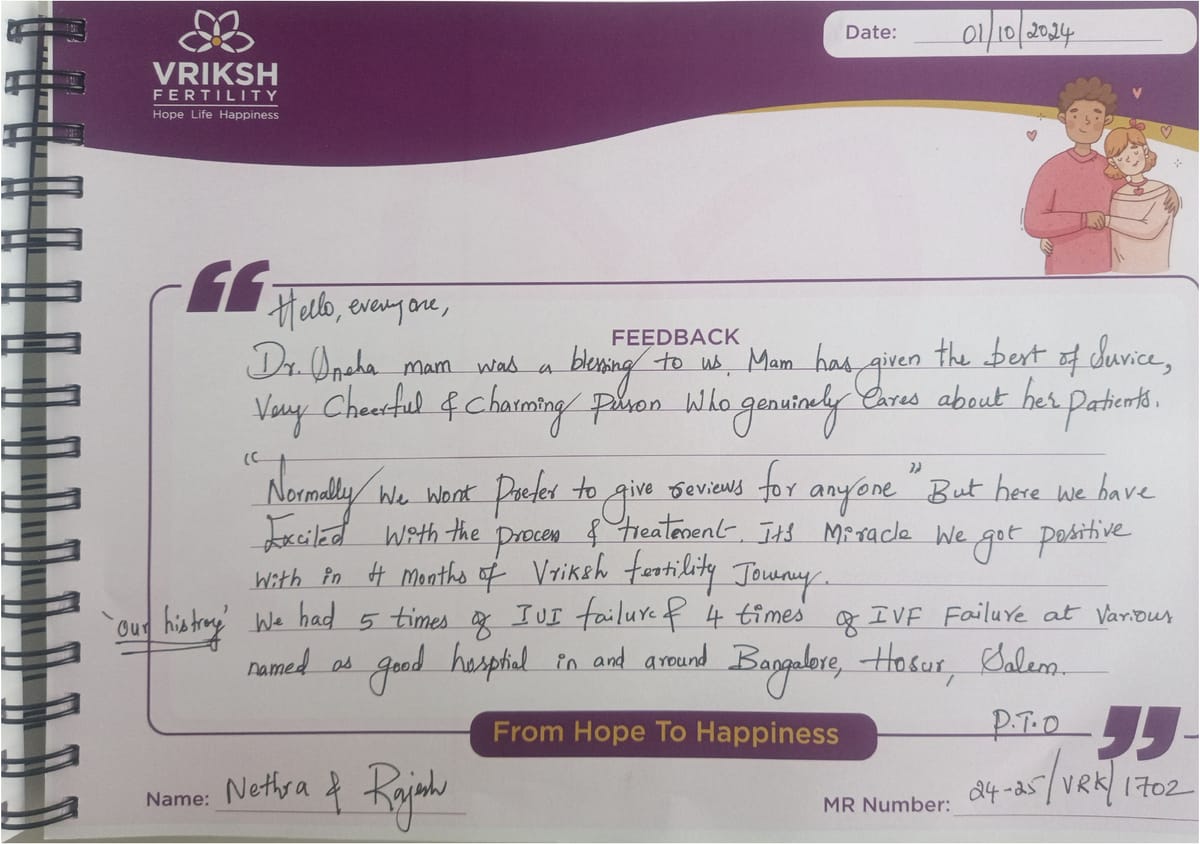 VRIKSH
FERTILITY
Hope Life Happiness
Date: 01/10/2024
Hello, everyone,
FEEDBACK
Dr. Sneha mam was a blessing to us. Mam has given the best of Survice,
Very Cheerful & Charming person who genuinely Cares about her patients.
"Normally we wont prefer to give reviews for anyone" But here we have
Excited With the process & treatement. Its Miracle We got positive
With in 4 Months of Vriksh fertility Journey.
'our histroy' We had 5 times of IUI failure & 4 times of IVF Failure at Various
named as good hosptial in and around Bangalore, Hosur, Salem.
P.T.O
From Hope To Happiness
Name: Nethra & Rajesh
MR Number: 24-25/VRK/1702